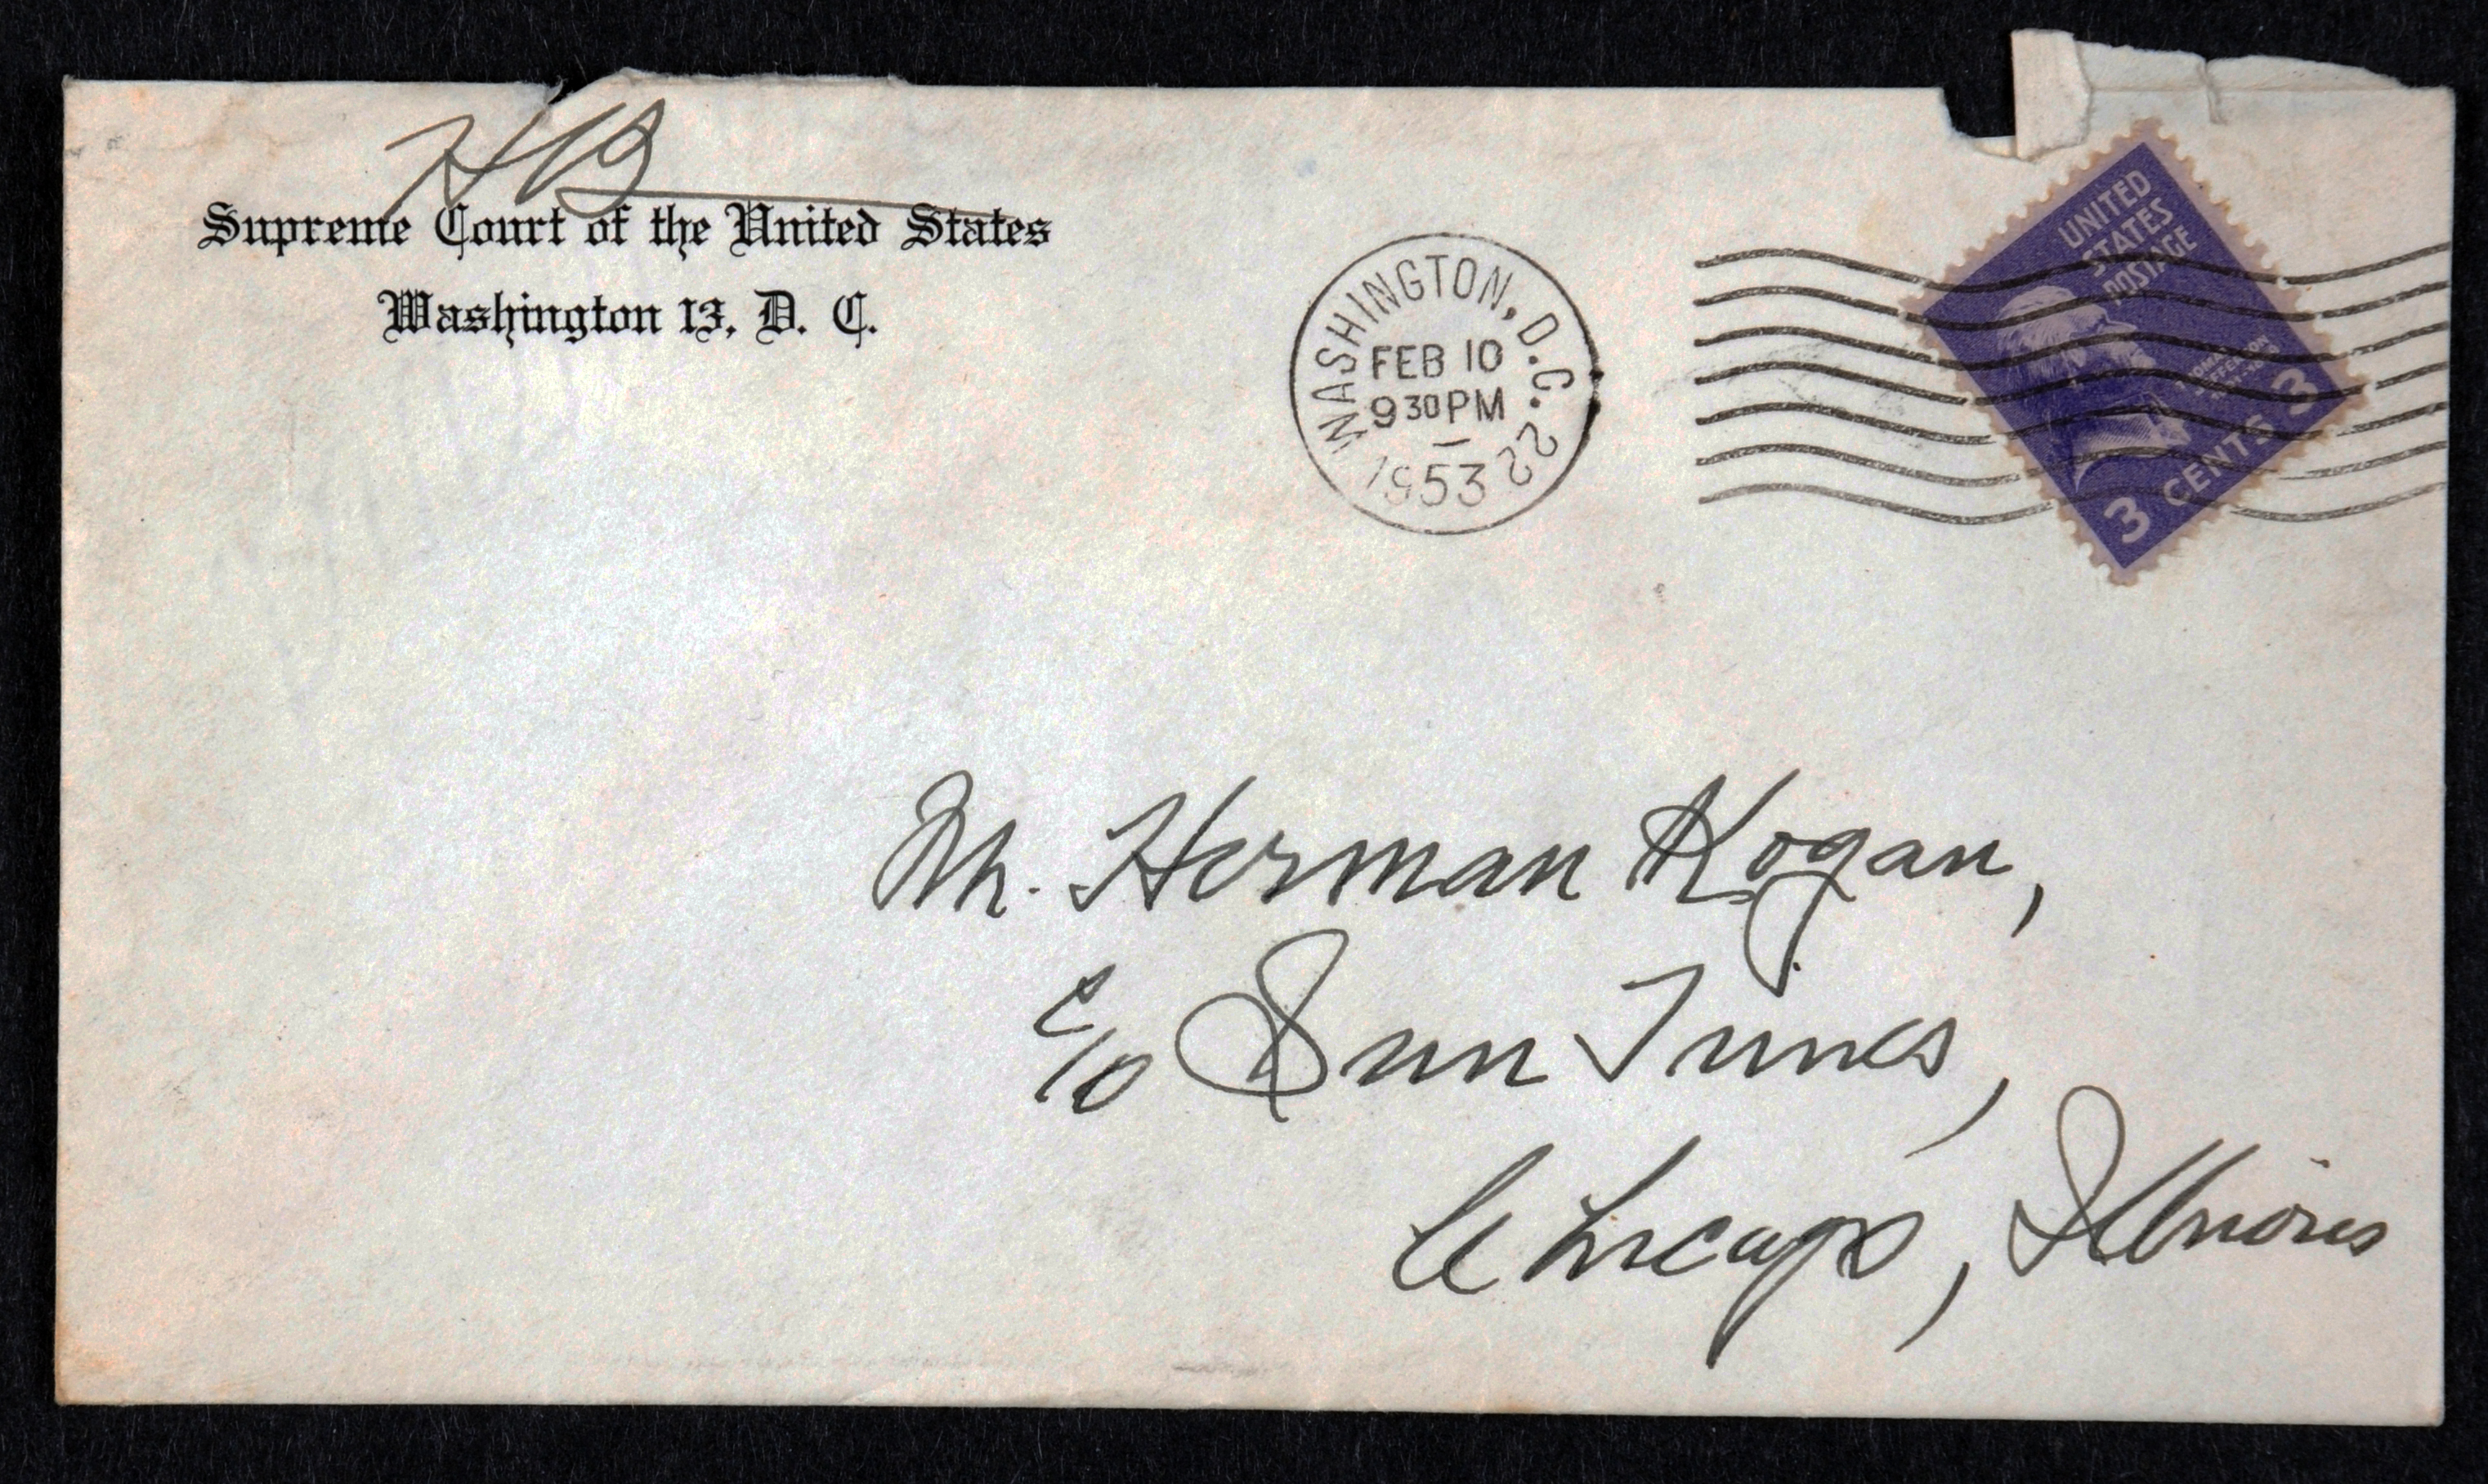 HB
Supreme Court of the United States
Washington 13, D. C.
WASHINGTON, D.C. 22
FEB 10
9 30 PM
1953
UNITED
STATES
POSTAGE
THOMAS
JEFFERSON
3 CENTS 3
Mr. Herman Kogan,
c/o Sun Times,
Chicago, Illinois